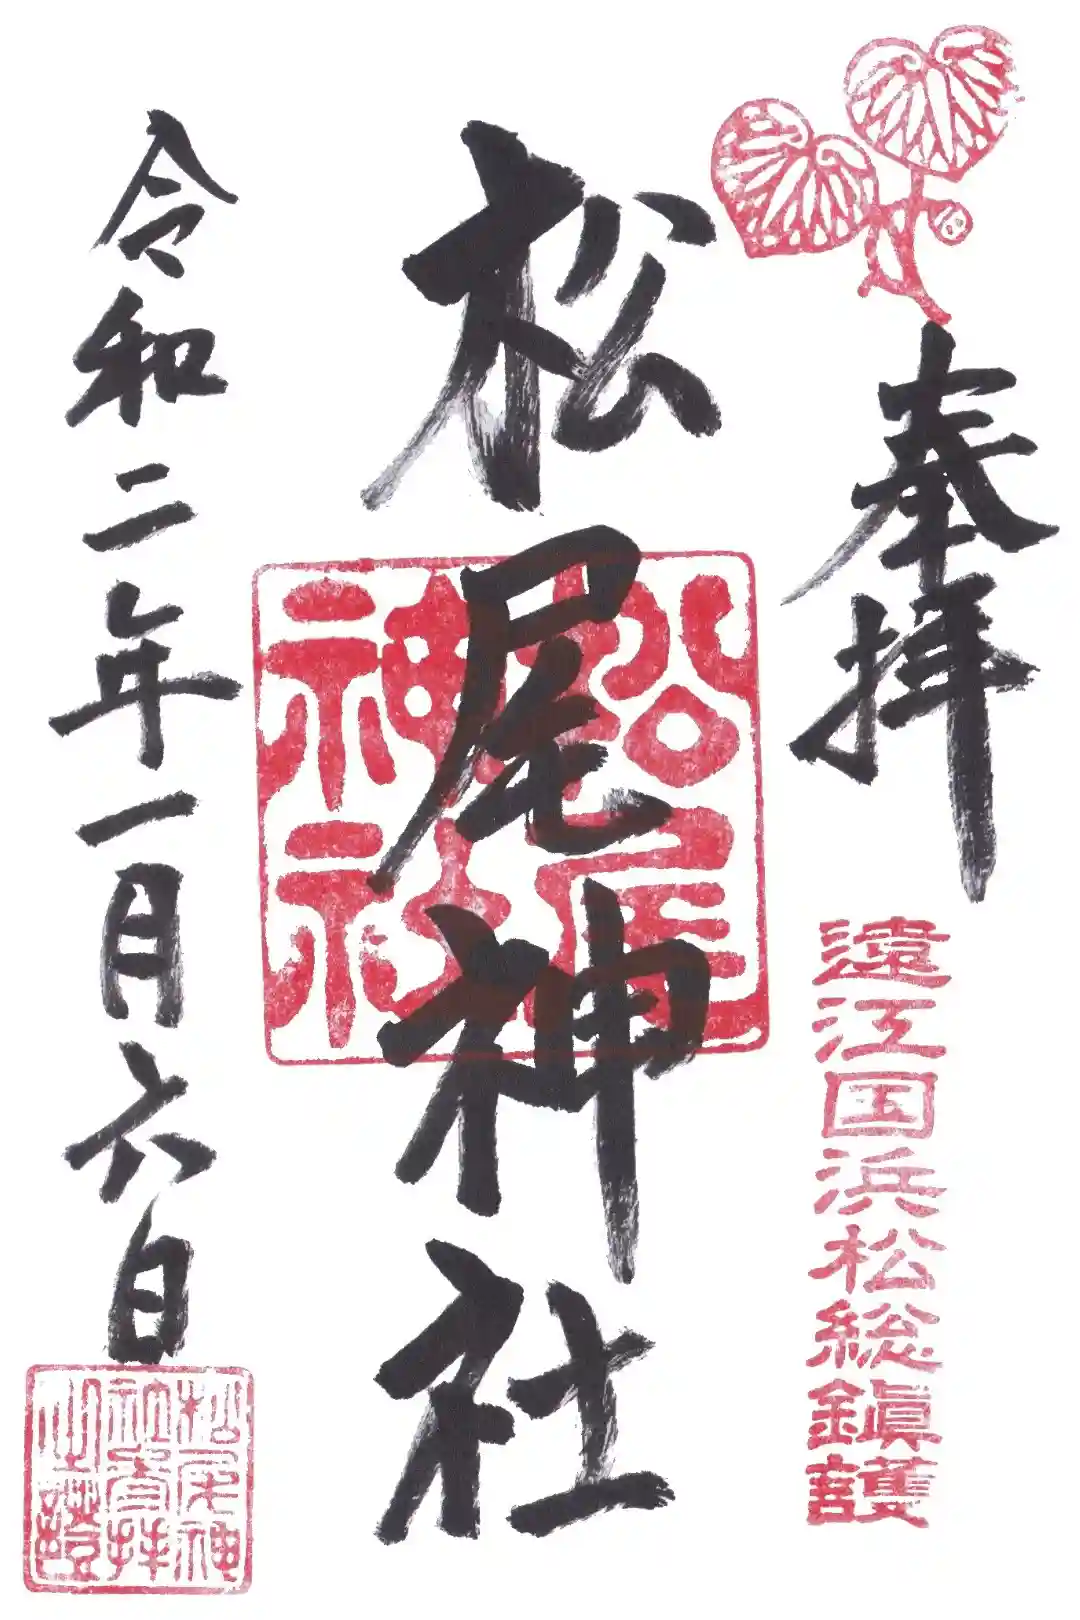 奉拝
遠江国浜松総鎮護
松尾神社
松尾
神社
令和二年一月六日
松尾神
社参拝
之証